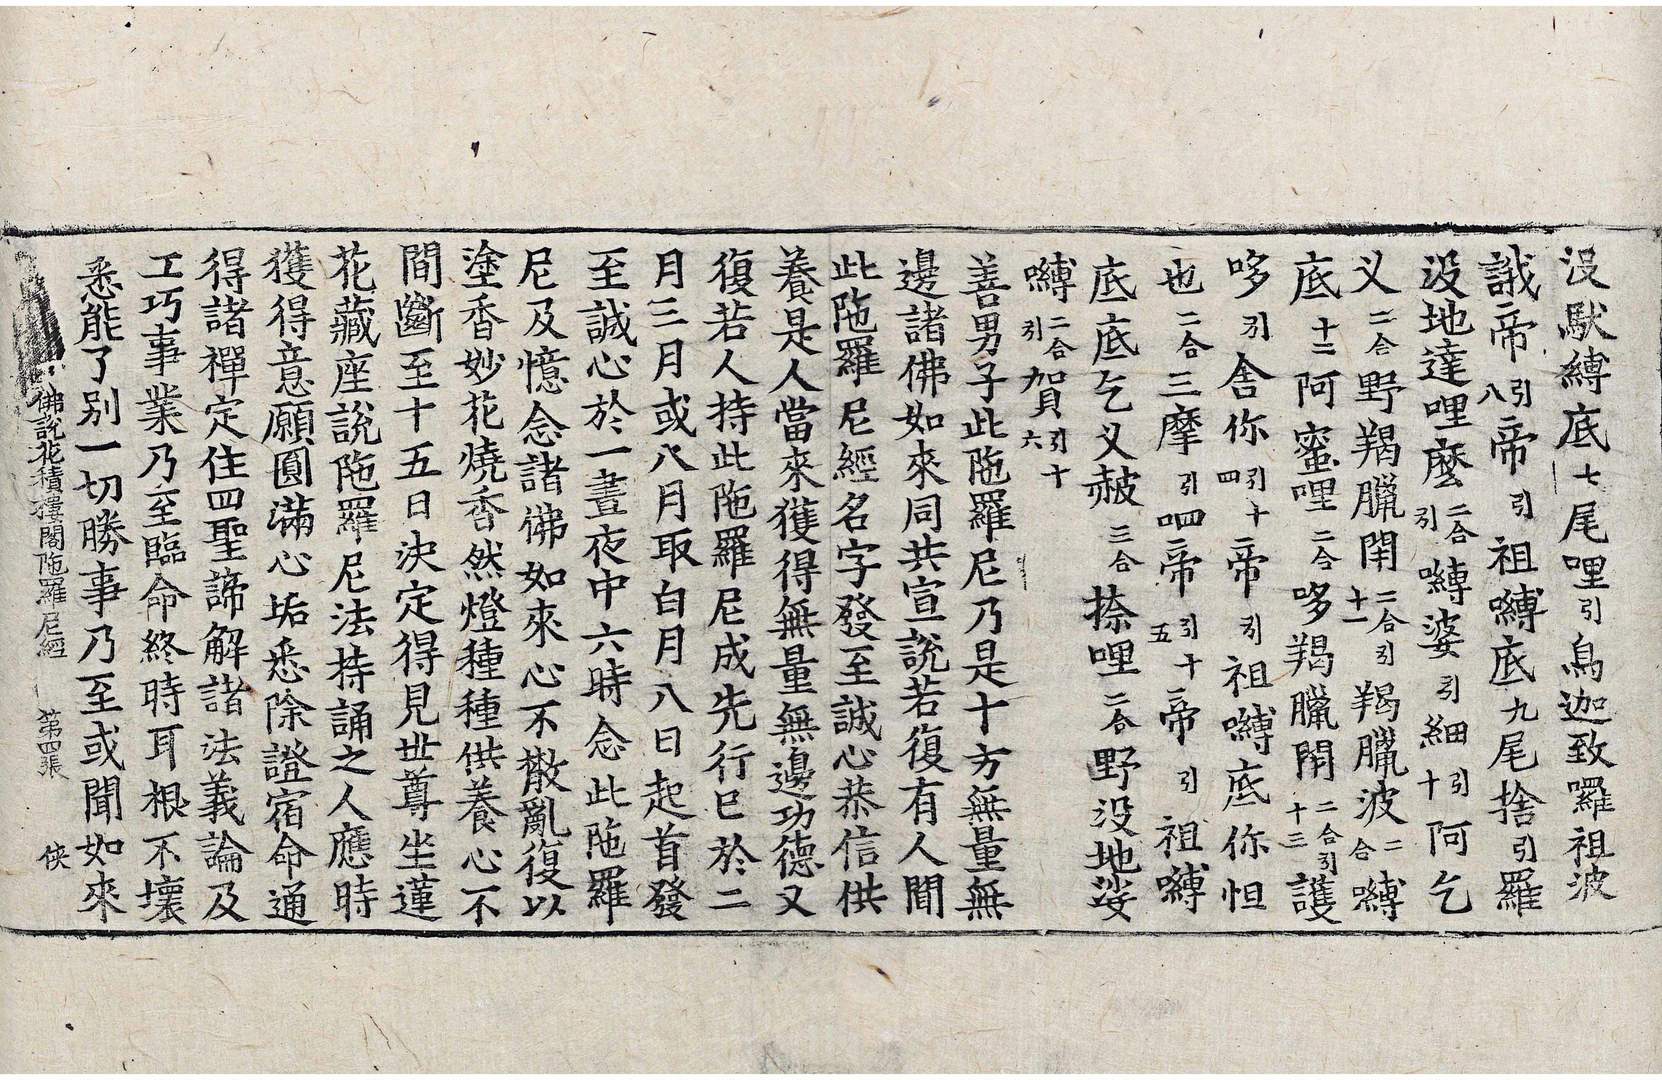 没馱縛底七尾哩引烏迦致囉祖波
誐帝引八帝引祖嚩底九尾捨引羅
没地達哩麽二合引嚩婆引細引十阿乞
义二合野羯臘閇二合引十一羯臘波二合嚩
底十二阿蜜哩二合哆羯臘閇二合引十三護
哆引舍你引十四帝引祖嚩底你怛
也二合三摩引呬帝引十五帝引祖嚩
底底乞义赧三合捺哩二合野没地娑
嚩二合引賀引十六
善男子此陁羅尼乃是十方無量無
邊諸佛如來同共宣說若復有人聞
此陁羅尼經名字發至誠心恭信供
養是人當來獲得無量無邊功德又
復若人持此陁羅尼成先行已於二
月三月或八月取白月八日起首發
至誠心於一晝夜中六時念此陁羅
尼及憶念諸佛如來心不散亂復以
塗香妙花燒香然燈種種供養心不
間斷至十五日決定得見世尊坐蓮
花藏座說陁羅尼法持誦之人應時
獲得意願圓滿心垢悉除證宿命通
得諸禪定住四聖諦解諸法義論及
工巧事業乃至臨命終時耳根不壞
悉能了別一切勝事乃至或聞如來
佛說花積樓閣陁羅尼經 第四張 俠